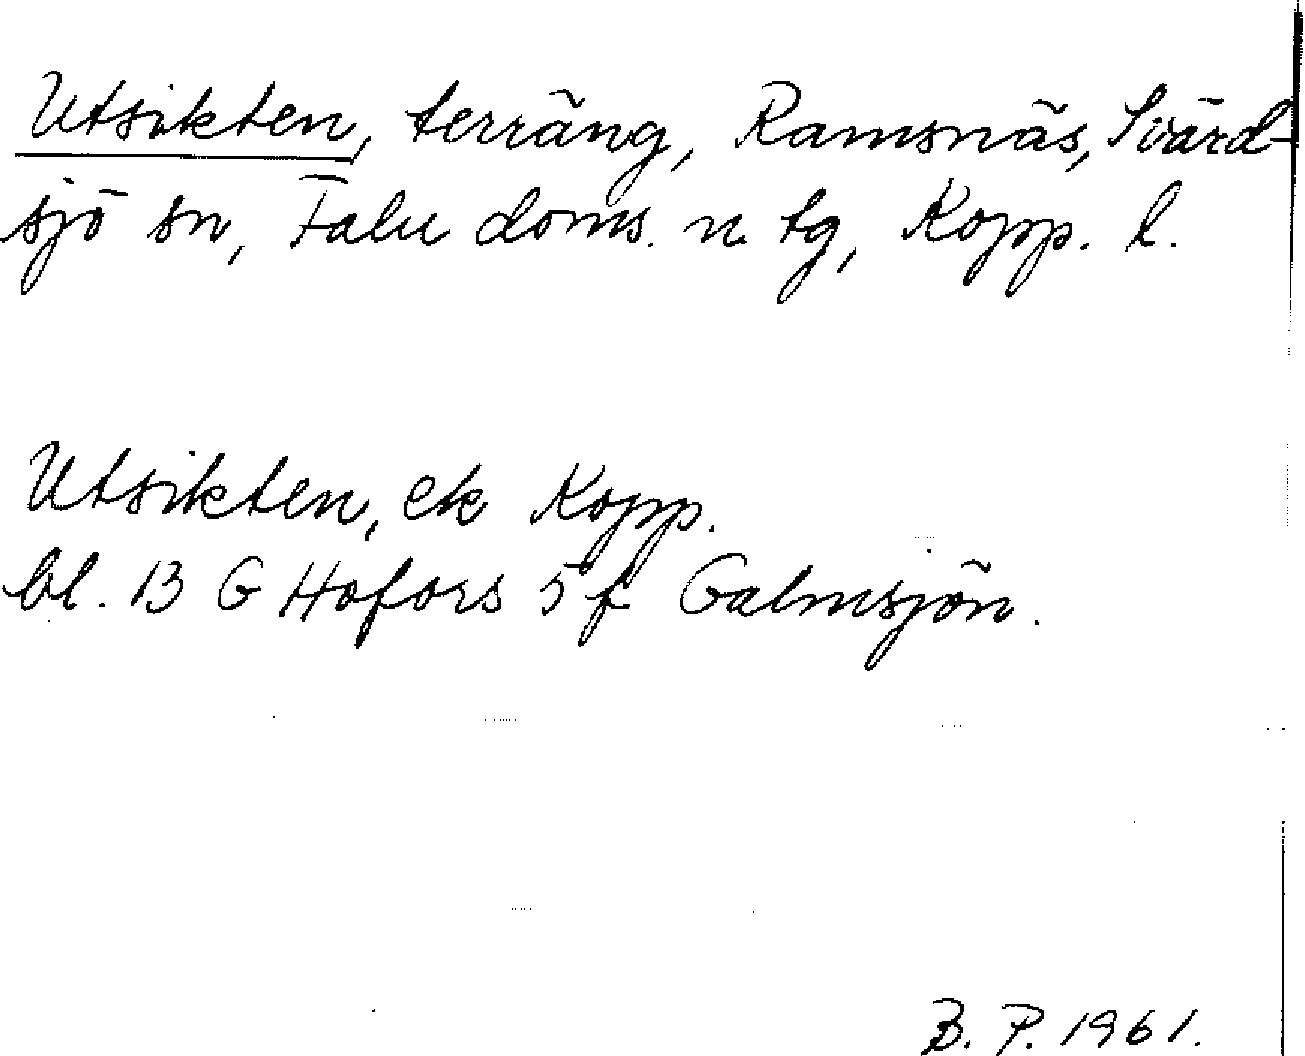 Utsikten, terräng, Ramsnäs, Svärd-
sjö sn, Falu doms. n. tg, Kopp. l.
Utsikten, ek Kopp.
bl. 13 G Hofors 5 f Galmsjön.
B. P. 1961.